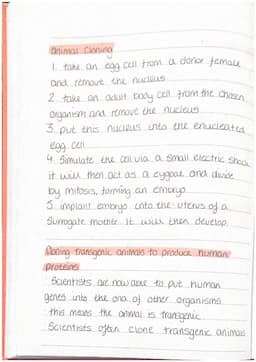 Animal Cloning
1. take an egg cell from a donor female
and remove the nucleus
2. take an adult body cell from the chosen
organism and remove the nucleus
3. put this nucleus into the enucleated
egg cell
4. Simulate the cell via a small electric shock
it will then act as a zygote and divide
by mitosis, forming an embryo
5. implant embryo into the uterus of a
surrogate mother. It will then develop.
Cloning transgenic animals to produce human
proteins
Scientists are now able to put human
genes into the DNA of other organisms.
this means the animal is transgenic
Scientists often clone transgenic animals